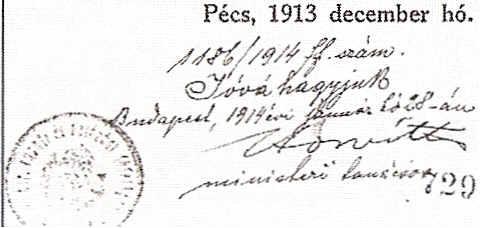 Pécs, 1913 december hó.
1186/1914 ff. szám.
Jóváhagyjuk
Budapest, 1914 évi január hó 28-án
ministeri tanácsos
729